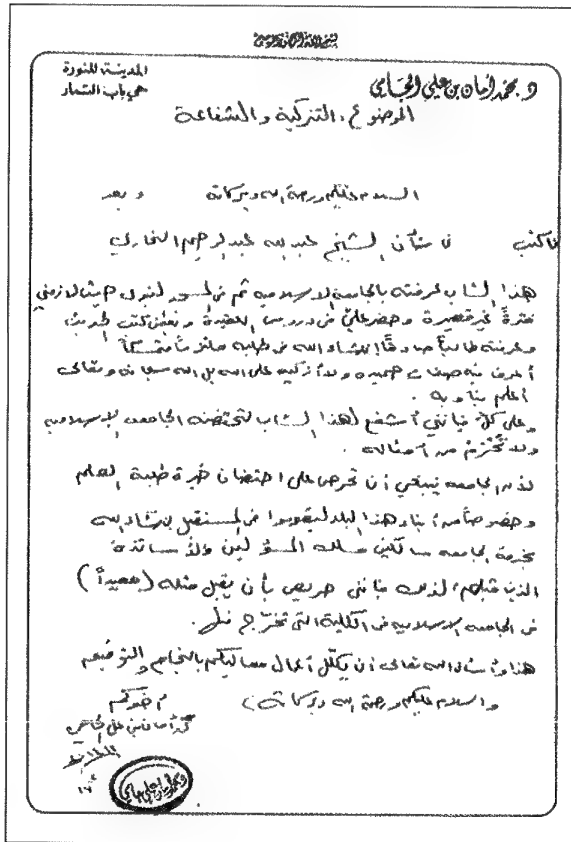 بسم الله الرحمن الرحيم
المدينة المنورة
حي باب التمار
د. محمد أمان بن علي الجامي
الموضوع: التزكية والشفاعة
السلام عليكم ورحمة الله وبركاته وبعد
فأكتب في شأن الشيخ عبد الله عبد الرحيم البخاري
هذا الشاب عرفته بالجامعة الإسلامية ثم في المسجد النبوي حيث لازمني
فترة غير قصيرة وحضر علي في دروس العقيدة وبعض كتب الحديث
وعرفته طالباً صادقاً إن شاء الله في طلبه ملتزماً متمسكاً
أعرف فيه صفات حميدة ولا أزكيه على الله بل الله سبحانه وتعالى
أعلم بنا وبه.
وعلى كل فإنني أشفع لهذا الشاب لتحتضنه الجامعة الإسلامية
ولا تحرم من أمثاله.
لأن الجامعة ينبغي أن تحرص على احتضان خيرة طلبة العلم
وخصوصاً من أبناء هذا البلد ليقوموا في المستقبل إن شاء الله
بخدمة الجامعة سالكين مسلك المسؤولين والأساتذة
الذين قبلهم، لذلك فإنني حريص بأن يقبل مثله (معيداً)
في الجامعة الإسلامية في الكلية التي تخرج منها.
هذا وأسأل الله تعالى أن يكلل أعمال معاليكم بالنجاح والتوفيق
والسلام عليكم ورحمة الله وبركاته،
أخوكم
محمد أمان بن علي الجامي